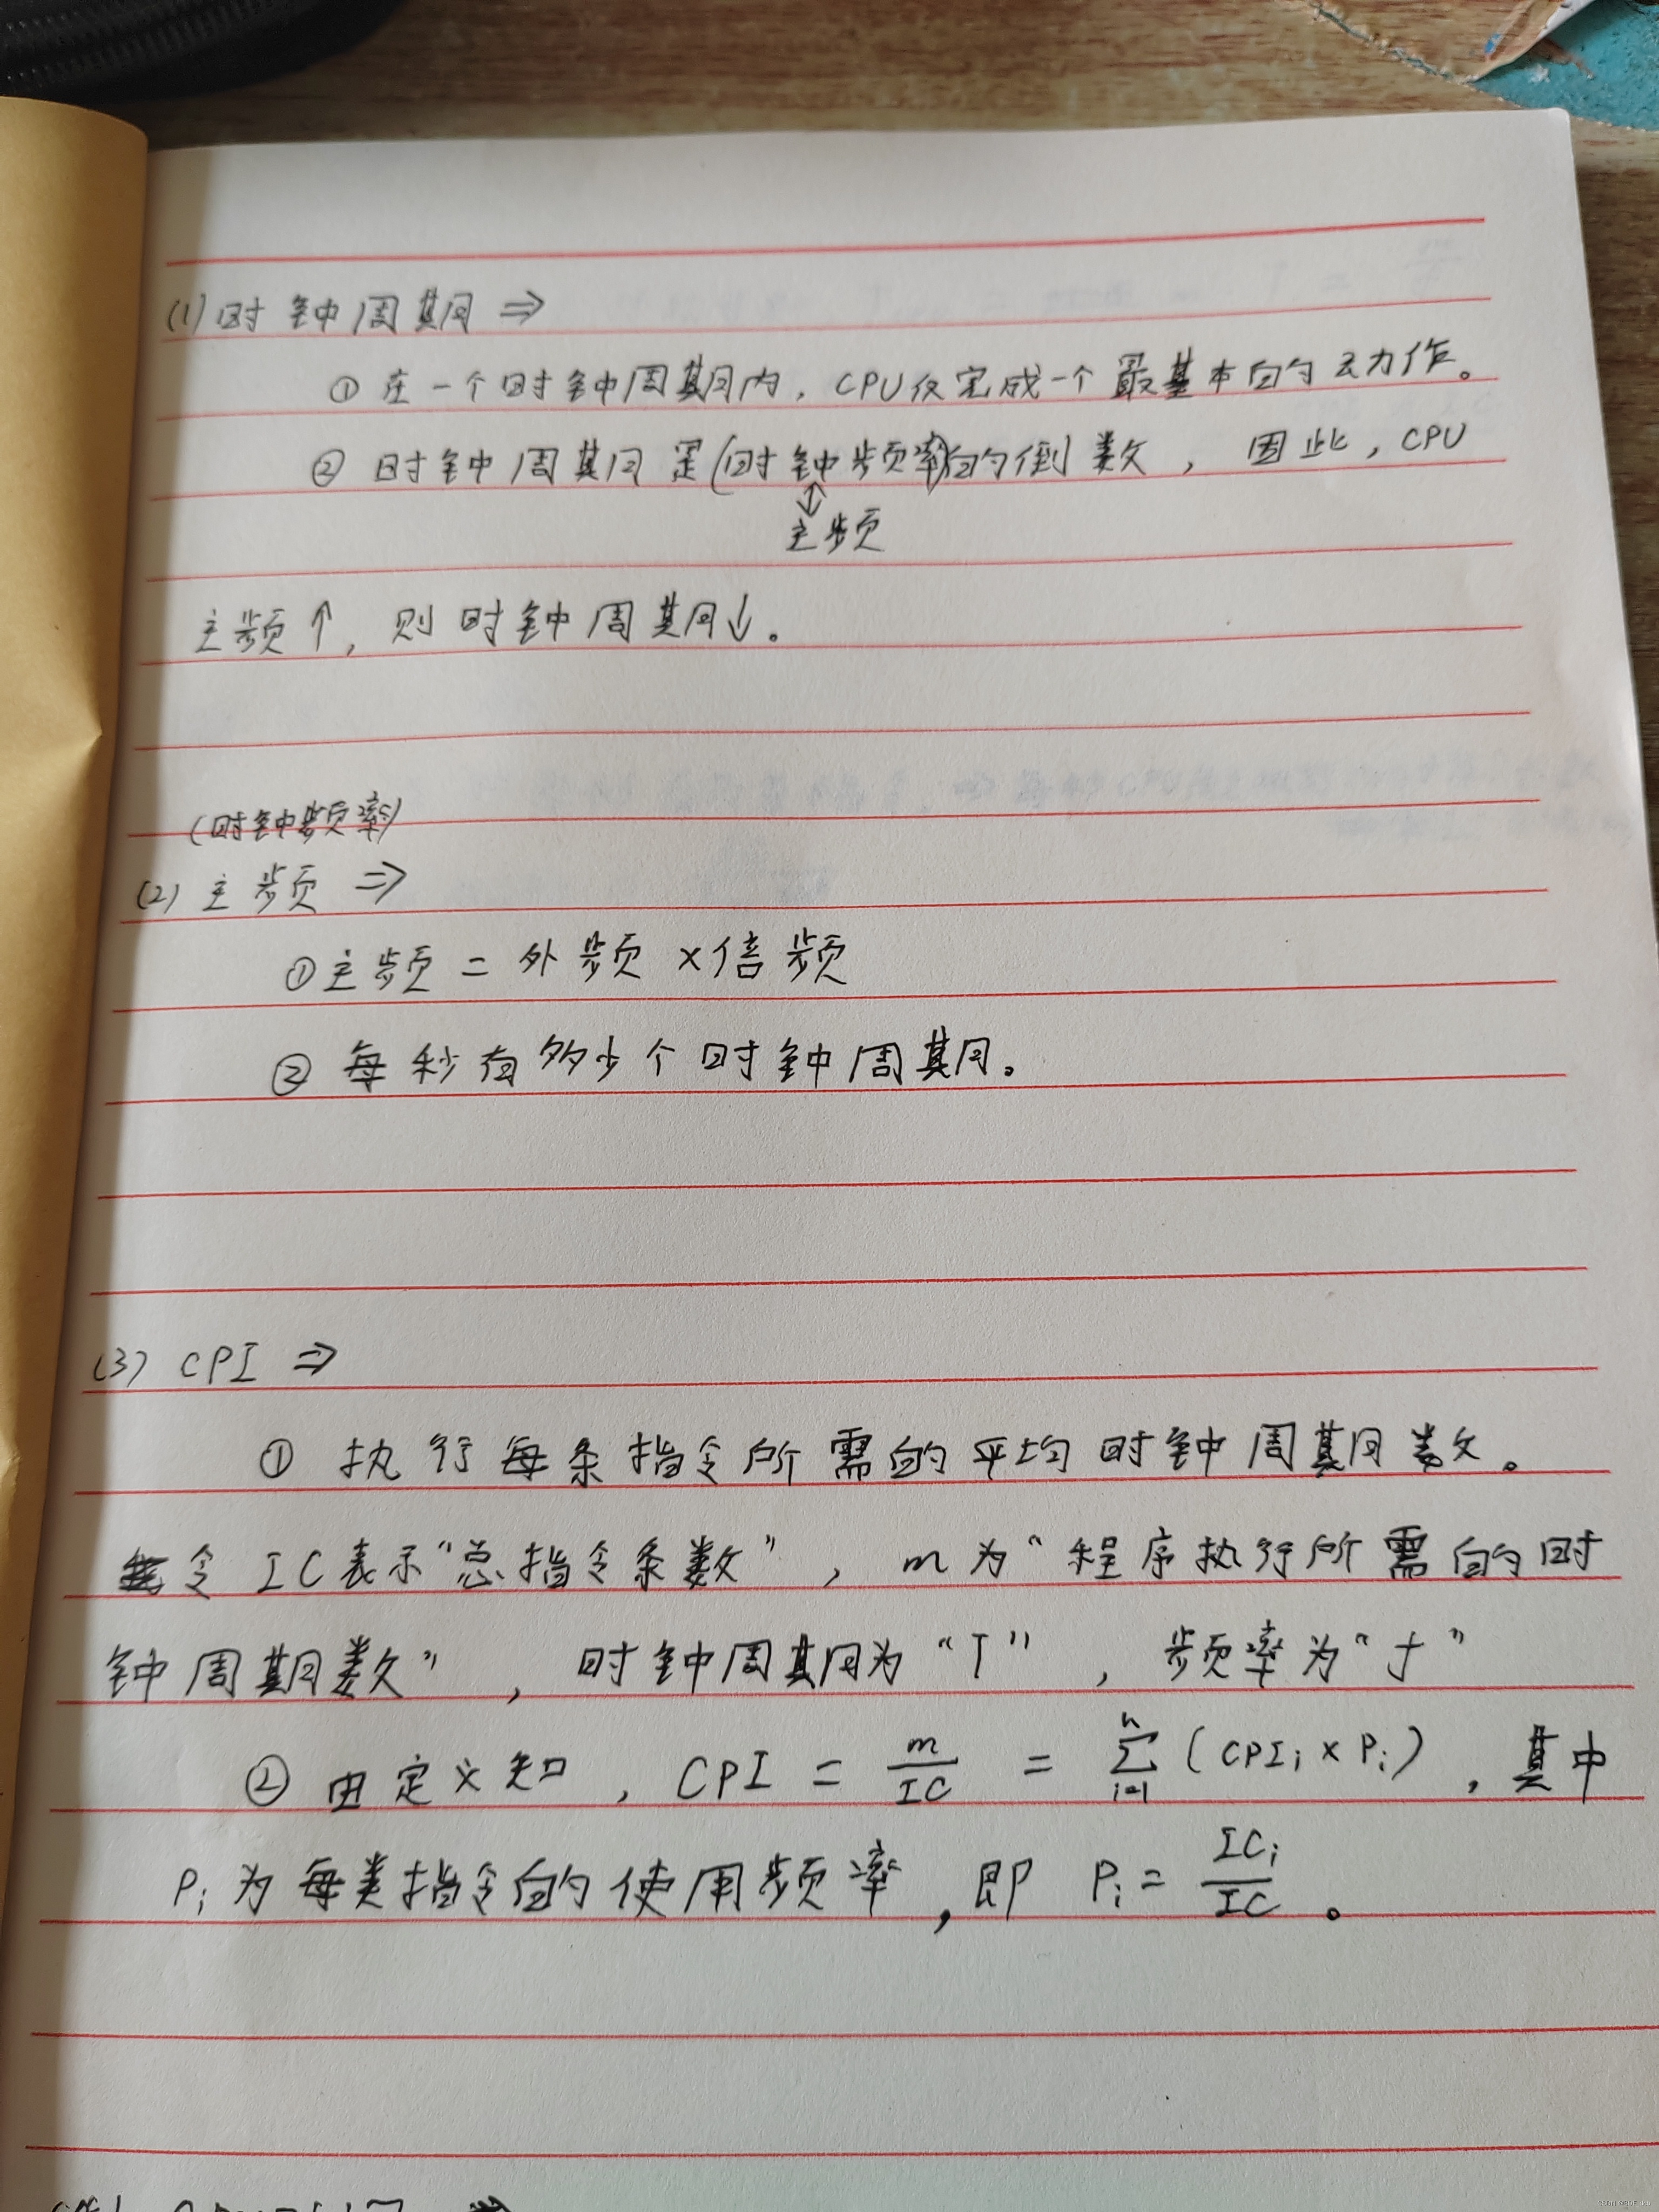 (1) 时钟周期 ⇒
① 在一个时钟周期内，CPU仅完成一个最基本的动作。
② 时钟周期是(时钟频率)的倒数，因此，CPU
↕
主频
主频↑，则时钟周期↓。
(时钟频率)
(2) 主频 ⇒
① 主频 = 外频 × 倍频
② 每秒有多少个时钟周期。
(3) CPI ⇒
① 执行每条指令所需的平均时钟周期数。
令 IC表示“总指令条数”，m为“程序执行所需的时
钟周期数”，时钟周期为“T”，频率为“f”
② 由定义知，CPI = m/IC = ∑_{i=1}^{n} (CPI_i × P_i)，其中
P_i 为每类指令的使用频率，即 P_i = IC_i/IC 。